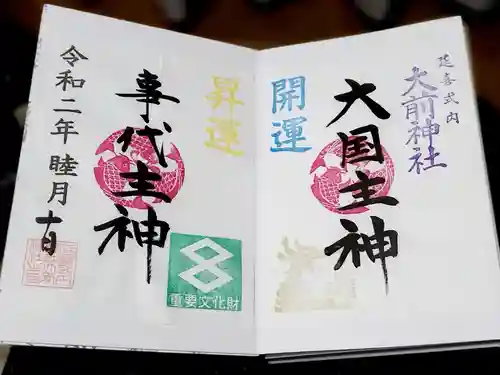 延喜式内
大前神社
開運
大国主神
昇運
事代主神
重要文化財
令和二年睦月十日